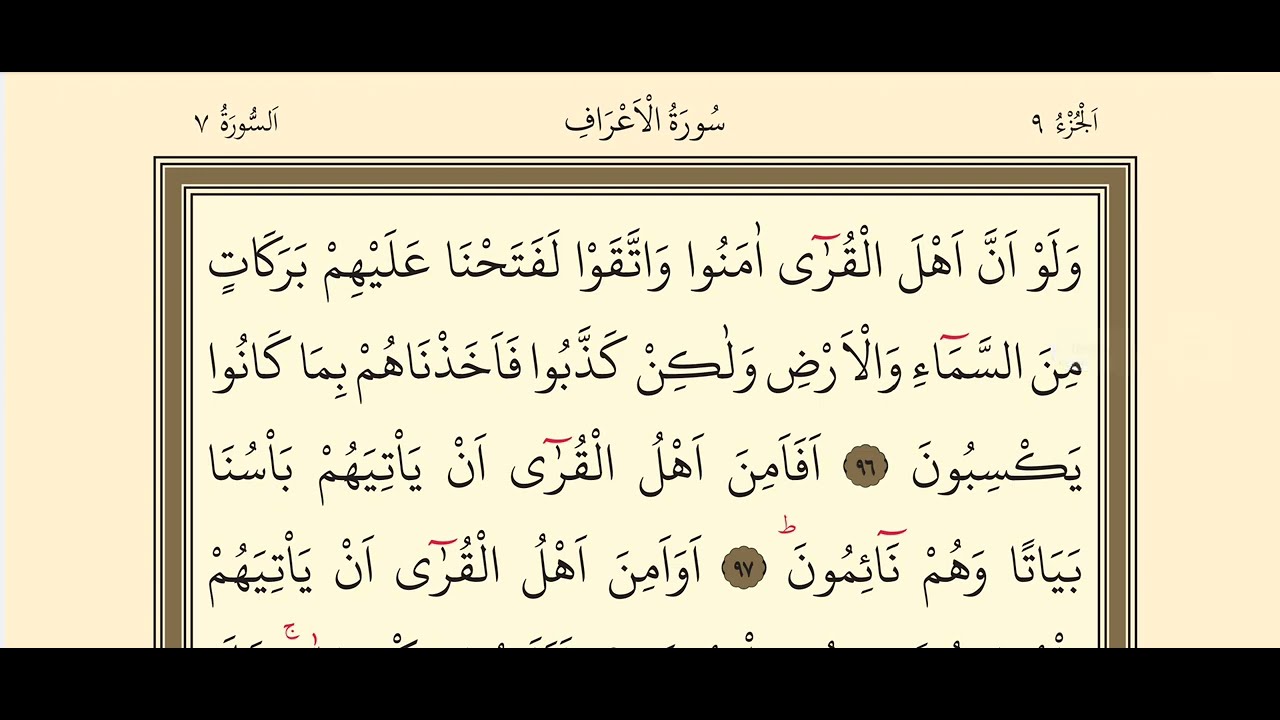 اَلْجُزْءُ ٩ سُورَةُ الْاَعْرَافِ اَلسُّورَةُ ٧
وَلَوْ اَنَّ اَهْلَ الْقُرٰٓى اٰمَنُوا وَاتَّقَوْا لَفَتَحْنَا عَلَيْهِمْ بَرَكَاتٍ
مِنَ السَّمَٓاءِ وَالْاَرْضِ وَلٰكِنْ كَذَّبُوا فَاَخَذْنَاهُمْ بِمَا كَانُوا
يَكْسِبُونَ ٩٦ اَفَاَمِنَ اَهْلُ الْقُرٰٓى اَنْ يَاْتِيَهُمْ بَاْسُنَا
بَيَاتًا وَهُمْ نَٓائِمُونَ ؕ ٩٧ اَوَاَمِنَ اَهْلُ الْقُرٰٓى اَنْ يَاْتِيَهُمْ